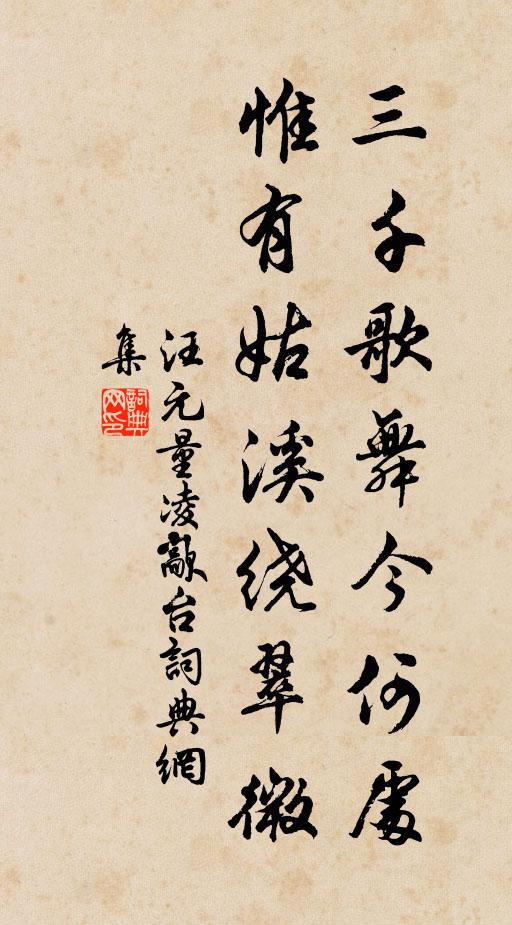 三千歌舞今何處
惟有姑溪绕翠微
汪元量凌歊台詞典網
集
詞典網印